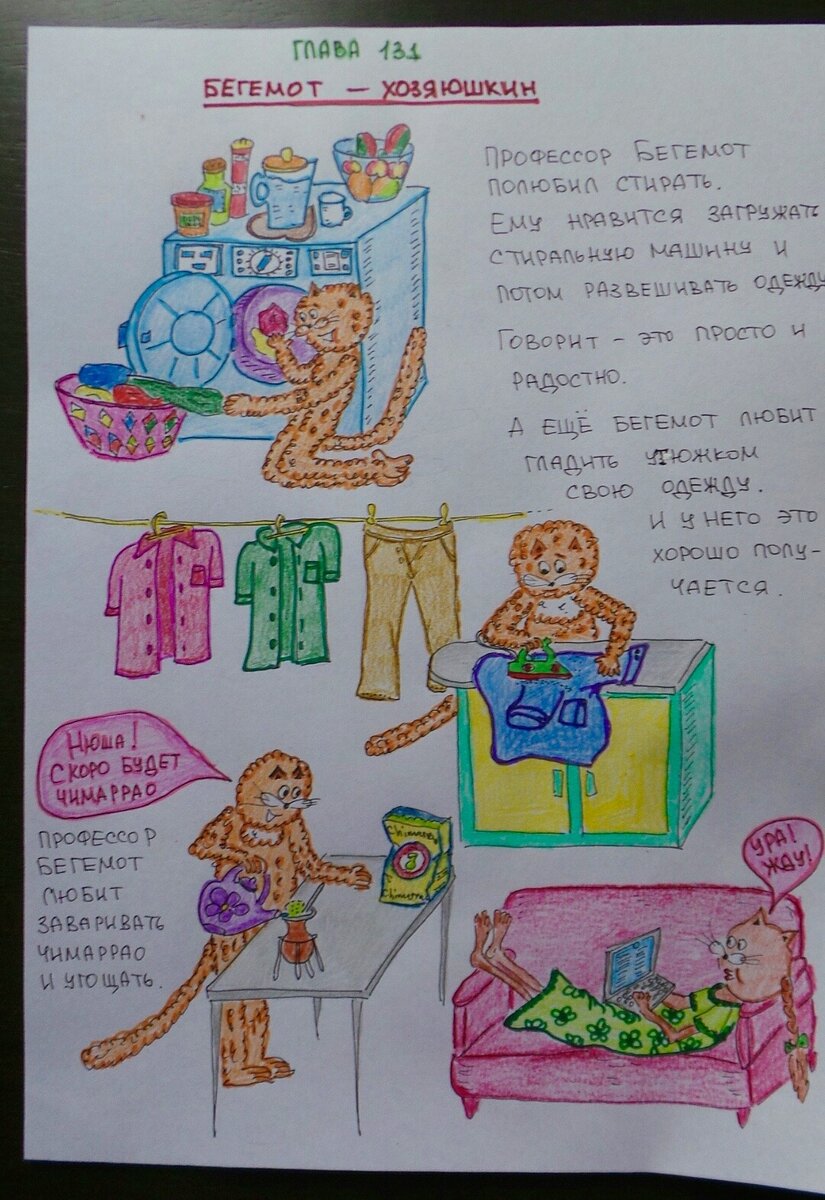 ГЛАВА 131
БЕГЕМОТ — ХОЗЯЮШКИН
ПРОФЕССОР БЕГЕМОТ
ПОЛЮБИЛ СТИРАТЬ.
ЕМУ НРАВИТСЯ ЗАГРУЖАТЬ
СТИРАЛЬНУЮ МАШИНУ И
ПОТОМ РАЗВЕШИВАТЬ ОДЕЖДУ
ГОВОРИТ – ЭТО ПРОСТО И
РАДОСТНО.
А ЕЩЁ БЕГЕМОТ ЛЮБИТ
ГЛАДИТЬ УТЮЖКОМ
СВОЮ ОДЕЖДУ.
И У НЕГО ЭТО
ХОРОШО ПОЛУ-
ЧАЕТСЯ.
НЮША!
СКОРО БУДЕТ
ЧИМАРРАО
ПРОФЕССОР
БЕГЕМОТ
ЛЮБИТ
ЗАВАРИВАТЬ
ЧИМАРРАО
И УГОЩАТЬ.
УРА!
ЖДУ!